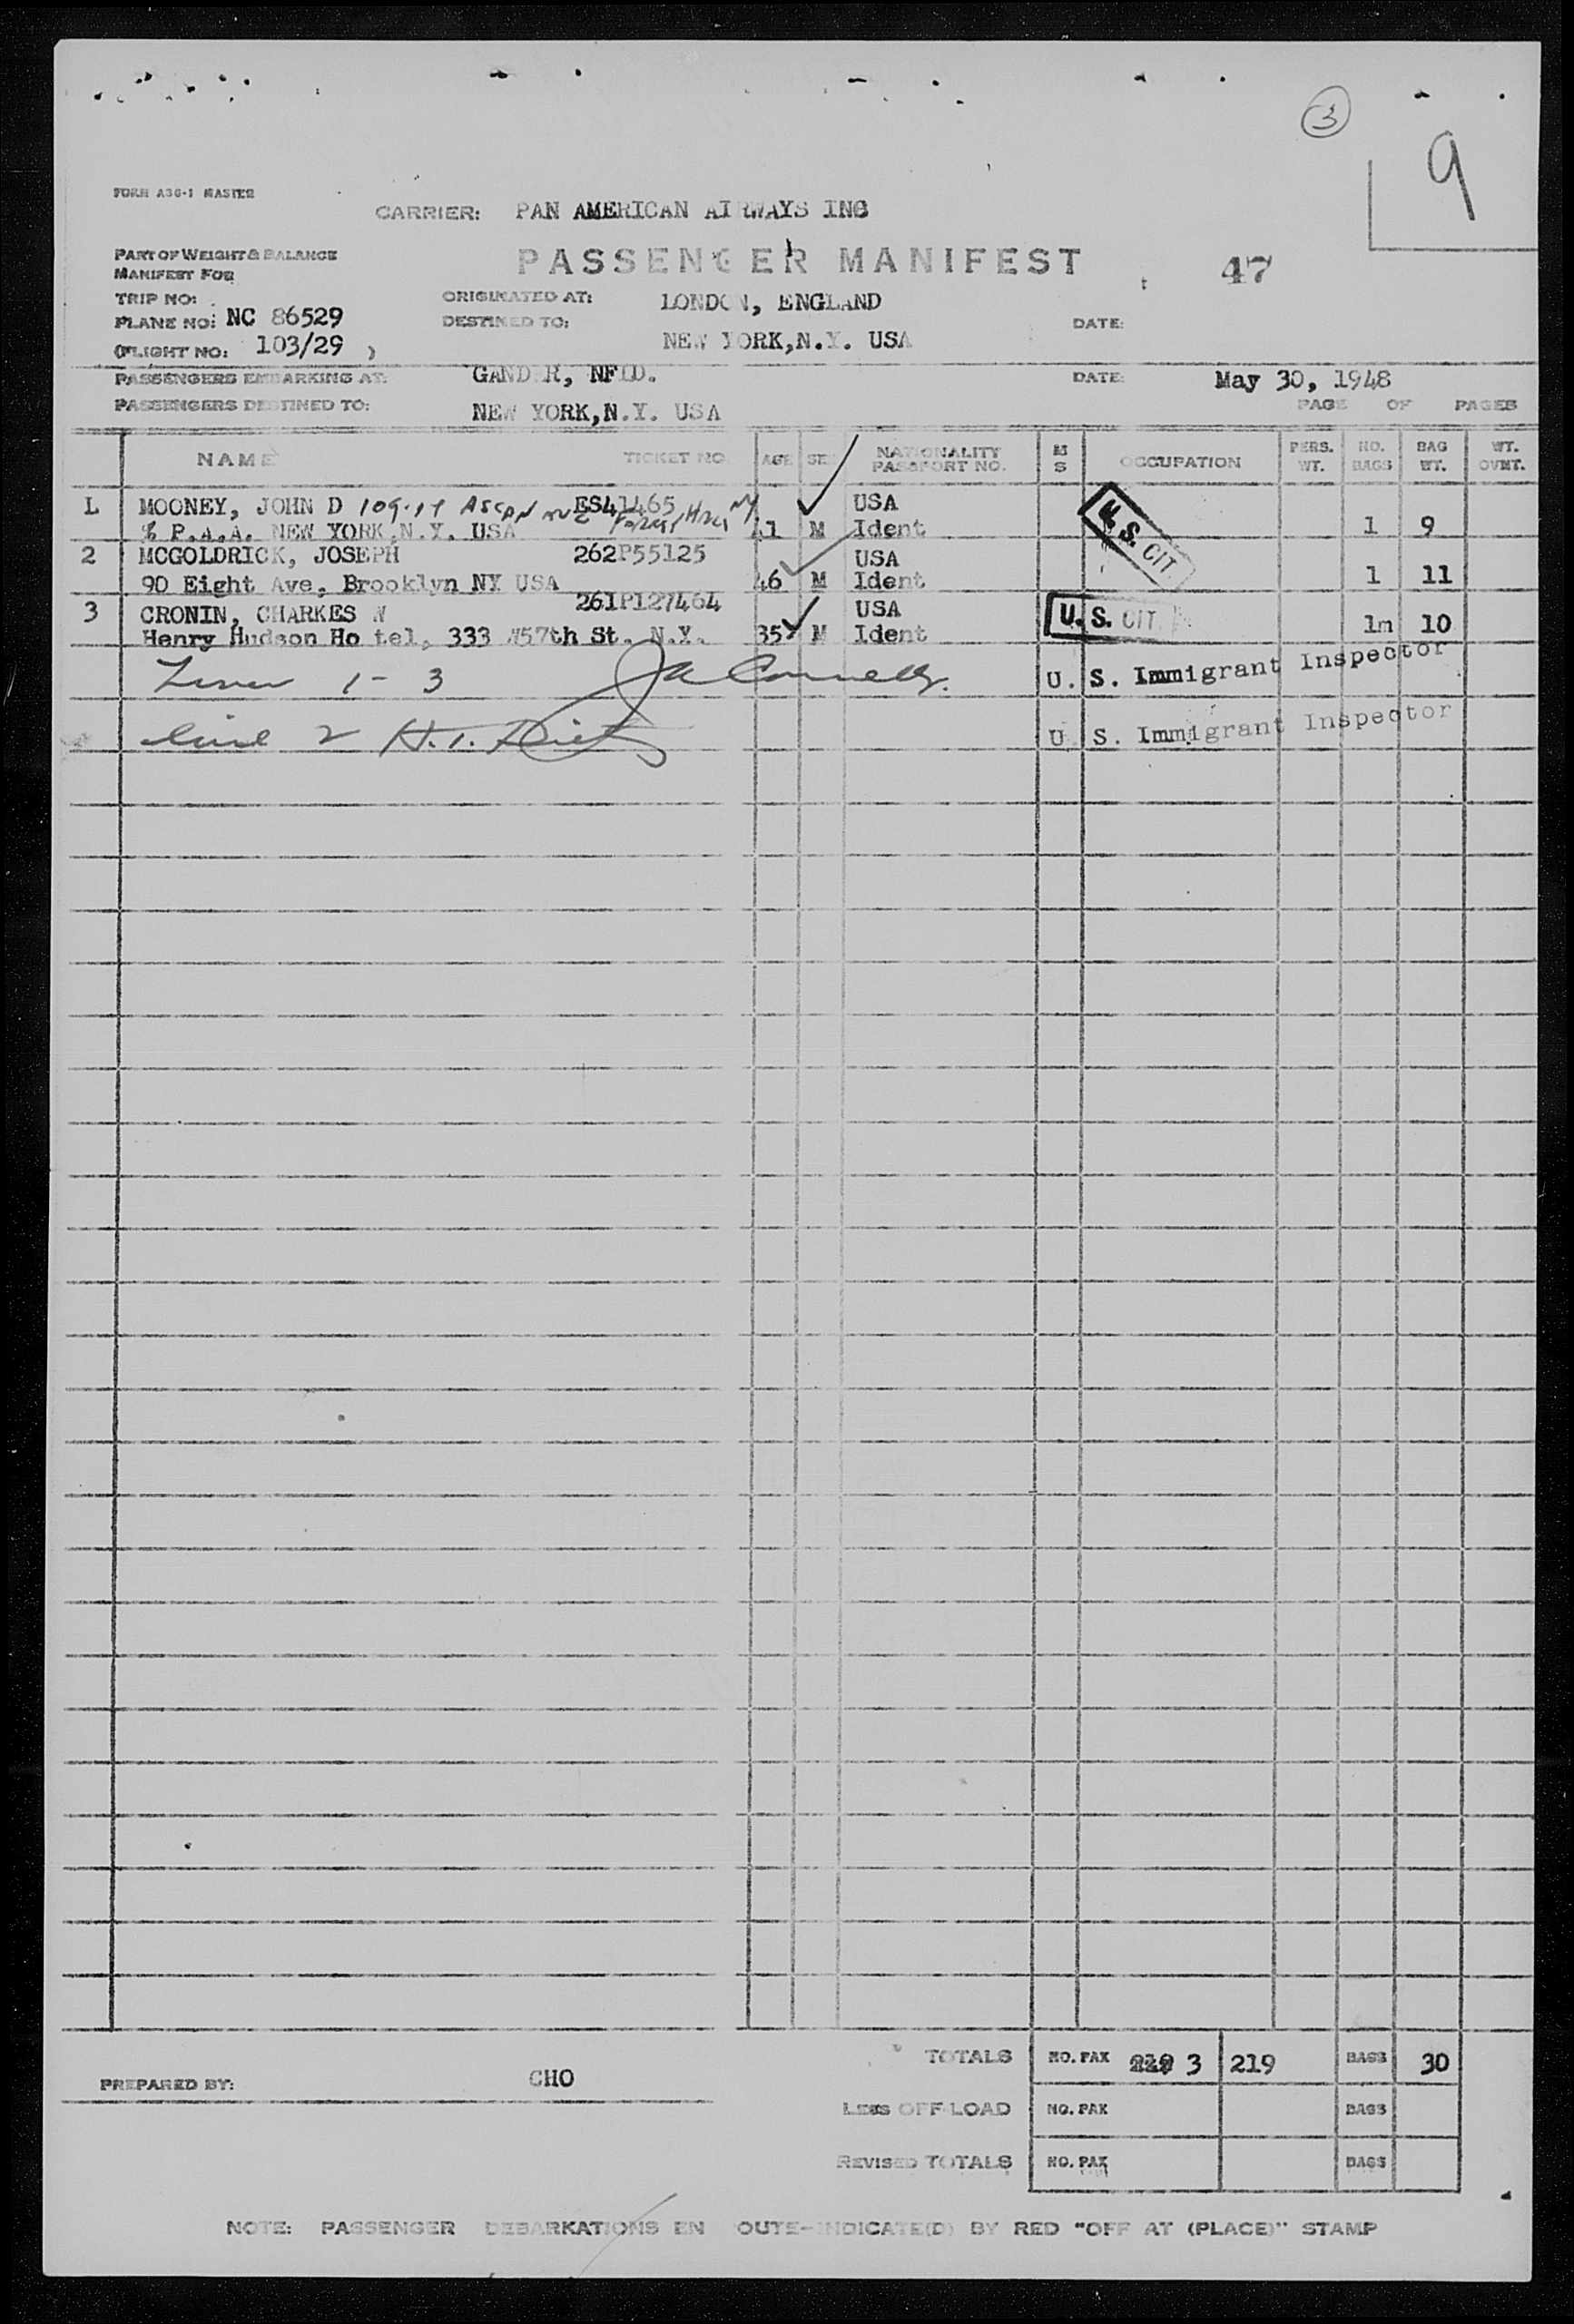 3
9
FORM A36-1 MASTER
CARRIER: PAN AMERICAN AIRWAYS INC
PART OF WEIGHT & BALANCE
MANIFEST FOR
PASSENGER MANIFEST
47
TRIP NO:
ORIGINATED AT: LONDON, ENGLAND
PLANE NO: NC 86529
DESTINED TO: NEW YORK,N.Y. USA
DATE:
(FLIGHT NO: 103/29 )
PASSENGERS EMBARKING AT: GANDER, NFLD. DATE: May 30, 1948
PASSENGERS DESTINED TO: NEW YORK,N.Y. USA PAGE OF PAGES
NAME TICKET NO. AGE SEX NATIONALITY PASSPORT NO. M S OCCUPATION PERS. WT. NO. BAGS BAG WT. WT. OVMT.
L MOONEY, JOHN D ASCAN AVE ES41465 USA
% P.A.A. NEW YORK,N.Y. USA 41 M Ident 1 9
U.S. CIT.
2 MCGOLDRICK, JOSEPH 262P55125 USA
90 Eight Ave, Brooklyn NY USA 46 M Ident 1 11
3 CRONIN, CHARKES W 261P127464 USA U.S. CIT.
Henry Hudson Ho tel, 333 W57th St. N.Y. 35 M Ident 1m 10
1 - 3 U. S. Immigrant Inspector
Line 2 U. S. Immigrant Inspector
TOTALS NO. PAX 3 219 BAGS 30
PREPARED BY: CHO
LESS OFF-LOAD NO. PAX BAGS
REVISED TOTALS NO. PAX BAGS
NOTE: PASSENGER DEBARKATIONS EN ROUTE-INDICATE(D) BY RED "OFF AT (PLACE)" STAMP